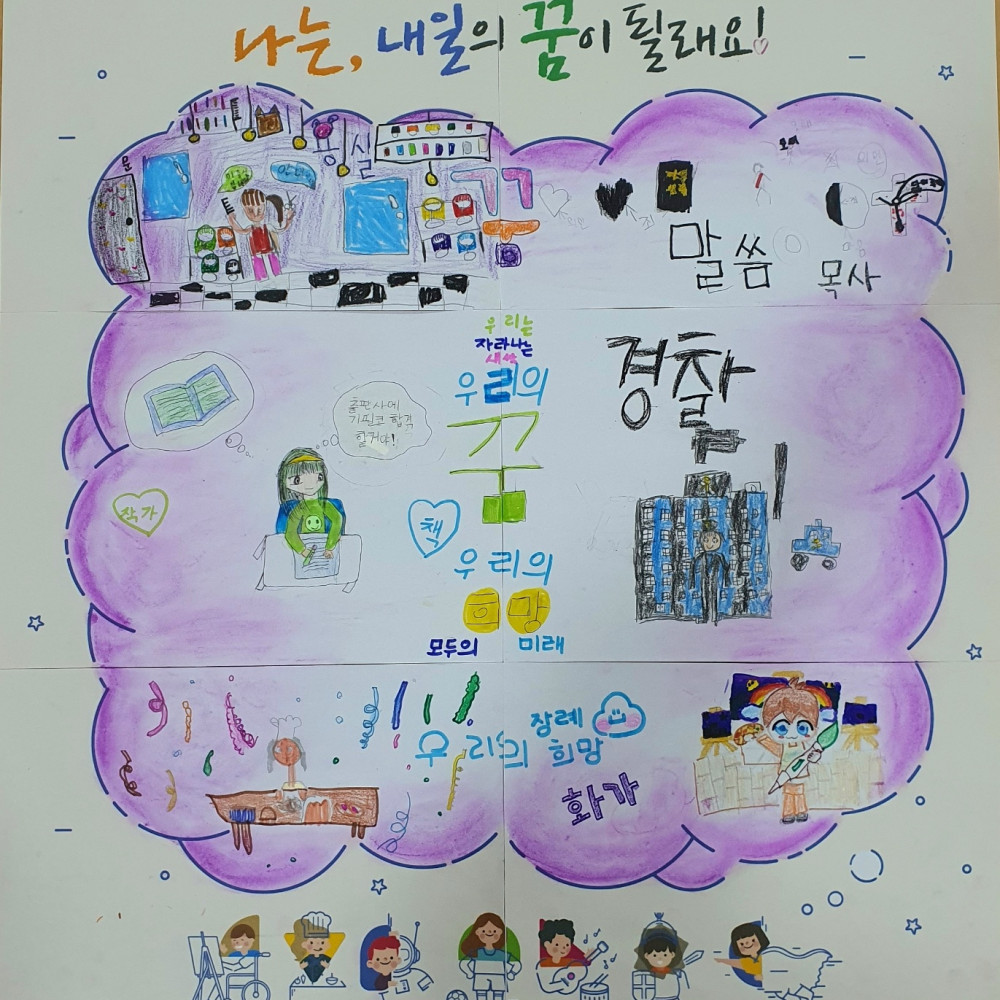 나는, 내일의 꿈이 필래요!
문
용실
안녕
말씀
목사
우리는
자라나는
새싹
우리의
꿈
경찰
출판사에
기필코 합격
할거야!
작가
책
우리의
희망
모두의 미래
장례
우리의 희망
화가